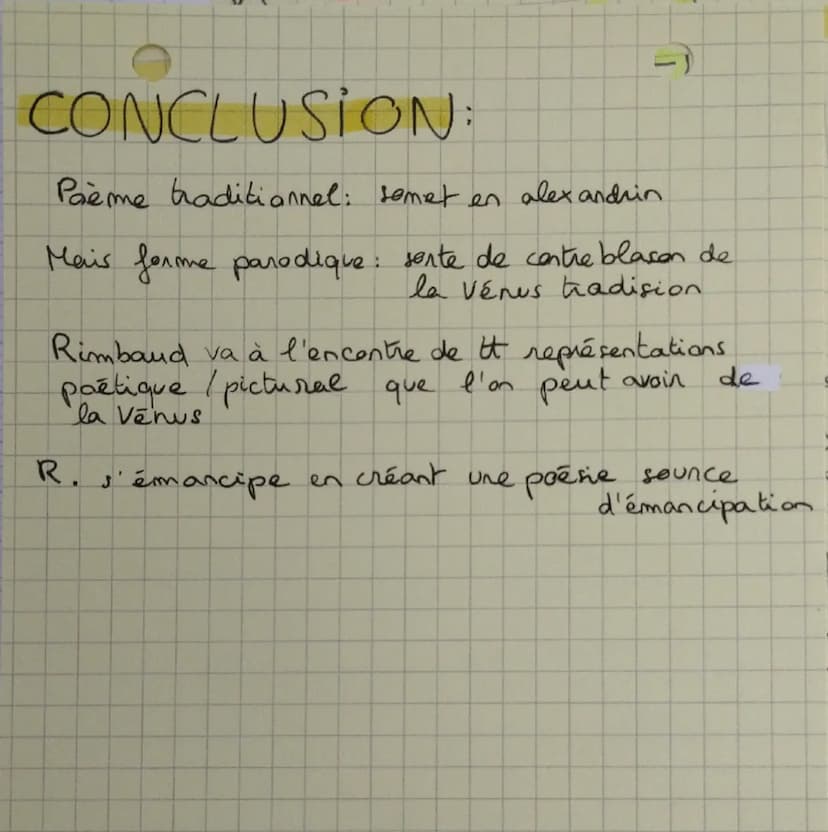 CONCLUSION:
Poème traditionnel: sonnet en alexandrin
Mais forme parodique: sorte de contre blason de
la Vénus tradision
Rimbaud va à l'encontre de tt représentations
poétique / pictural que l'on peut avoir de
la Vénus
R. s'émancipe en créant une poésie source
d'émancipation